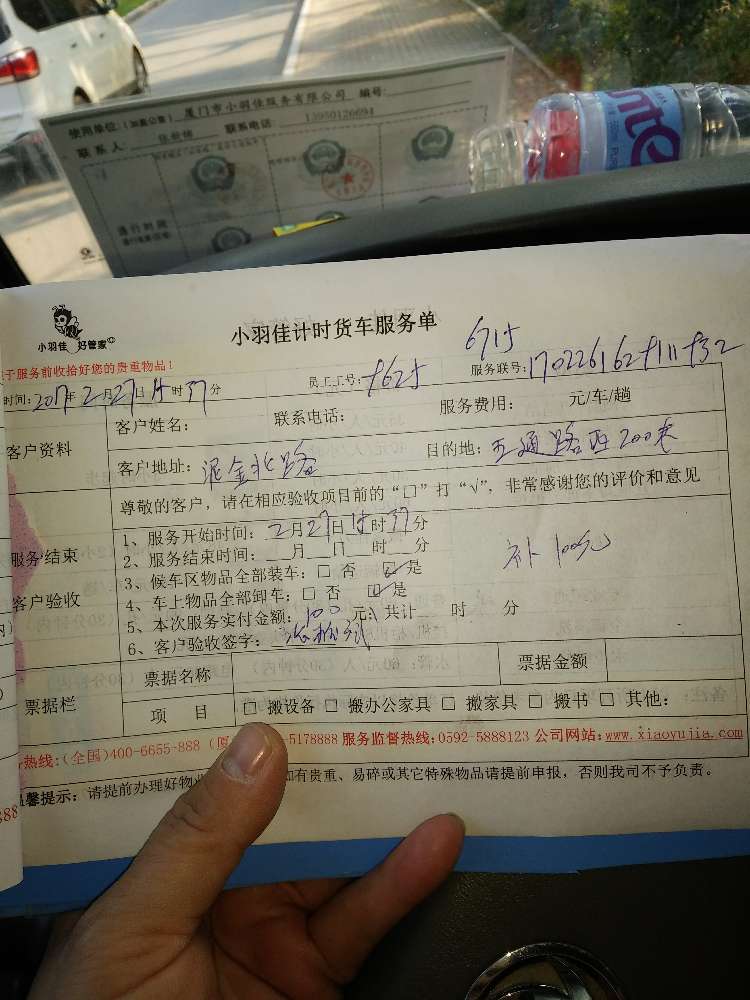 厦门市小羽佳服务有限公司 编号:
使用单位:(加盖公章)
联系人: 联系电话 13950126694
通行时间
nte
小羽佳 好管家
小羽佳计时货车服务单
6715
于服务前收拾好您的贵重物品！
时间: 2017年2月27日 时37分 员工工号: 8625 服务联号:
客户资料
客户姓名： 联系电话： 服务费用： 元/车/趟
客户地址：泥金北路 目的地：五通路西200米
尊敬的客户，请在相应验收项目前的“□”打“√”，非常感谢您的评价和意见
服务结束
客户验收
1、服务开始时间：2月27日 时37分
2、服务结束时间：__月__日__时__分
3、候车区物品全部装车：□ 否 ☑ 是
4、车上物品全部卸车：□ 否 ☑ 是
补100元
5、本次服务实付金额：100元；共计 时 分
6、客户验收签字：
票据栏
票据名称 票据金额
项 目 □ 搬设备 □ 搬办公家具 □ 搬家具 □ 搬书 □ 其他：
热线:(全国)400-6655-888 (厦 5178888 服务监督热线:0592-5888123 公司网站:www.xiaoyujia.com
温馨提示：请提前办理好物 如有贵重、易碎或其它特殊物品请提前申报，否则我司不予负责。